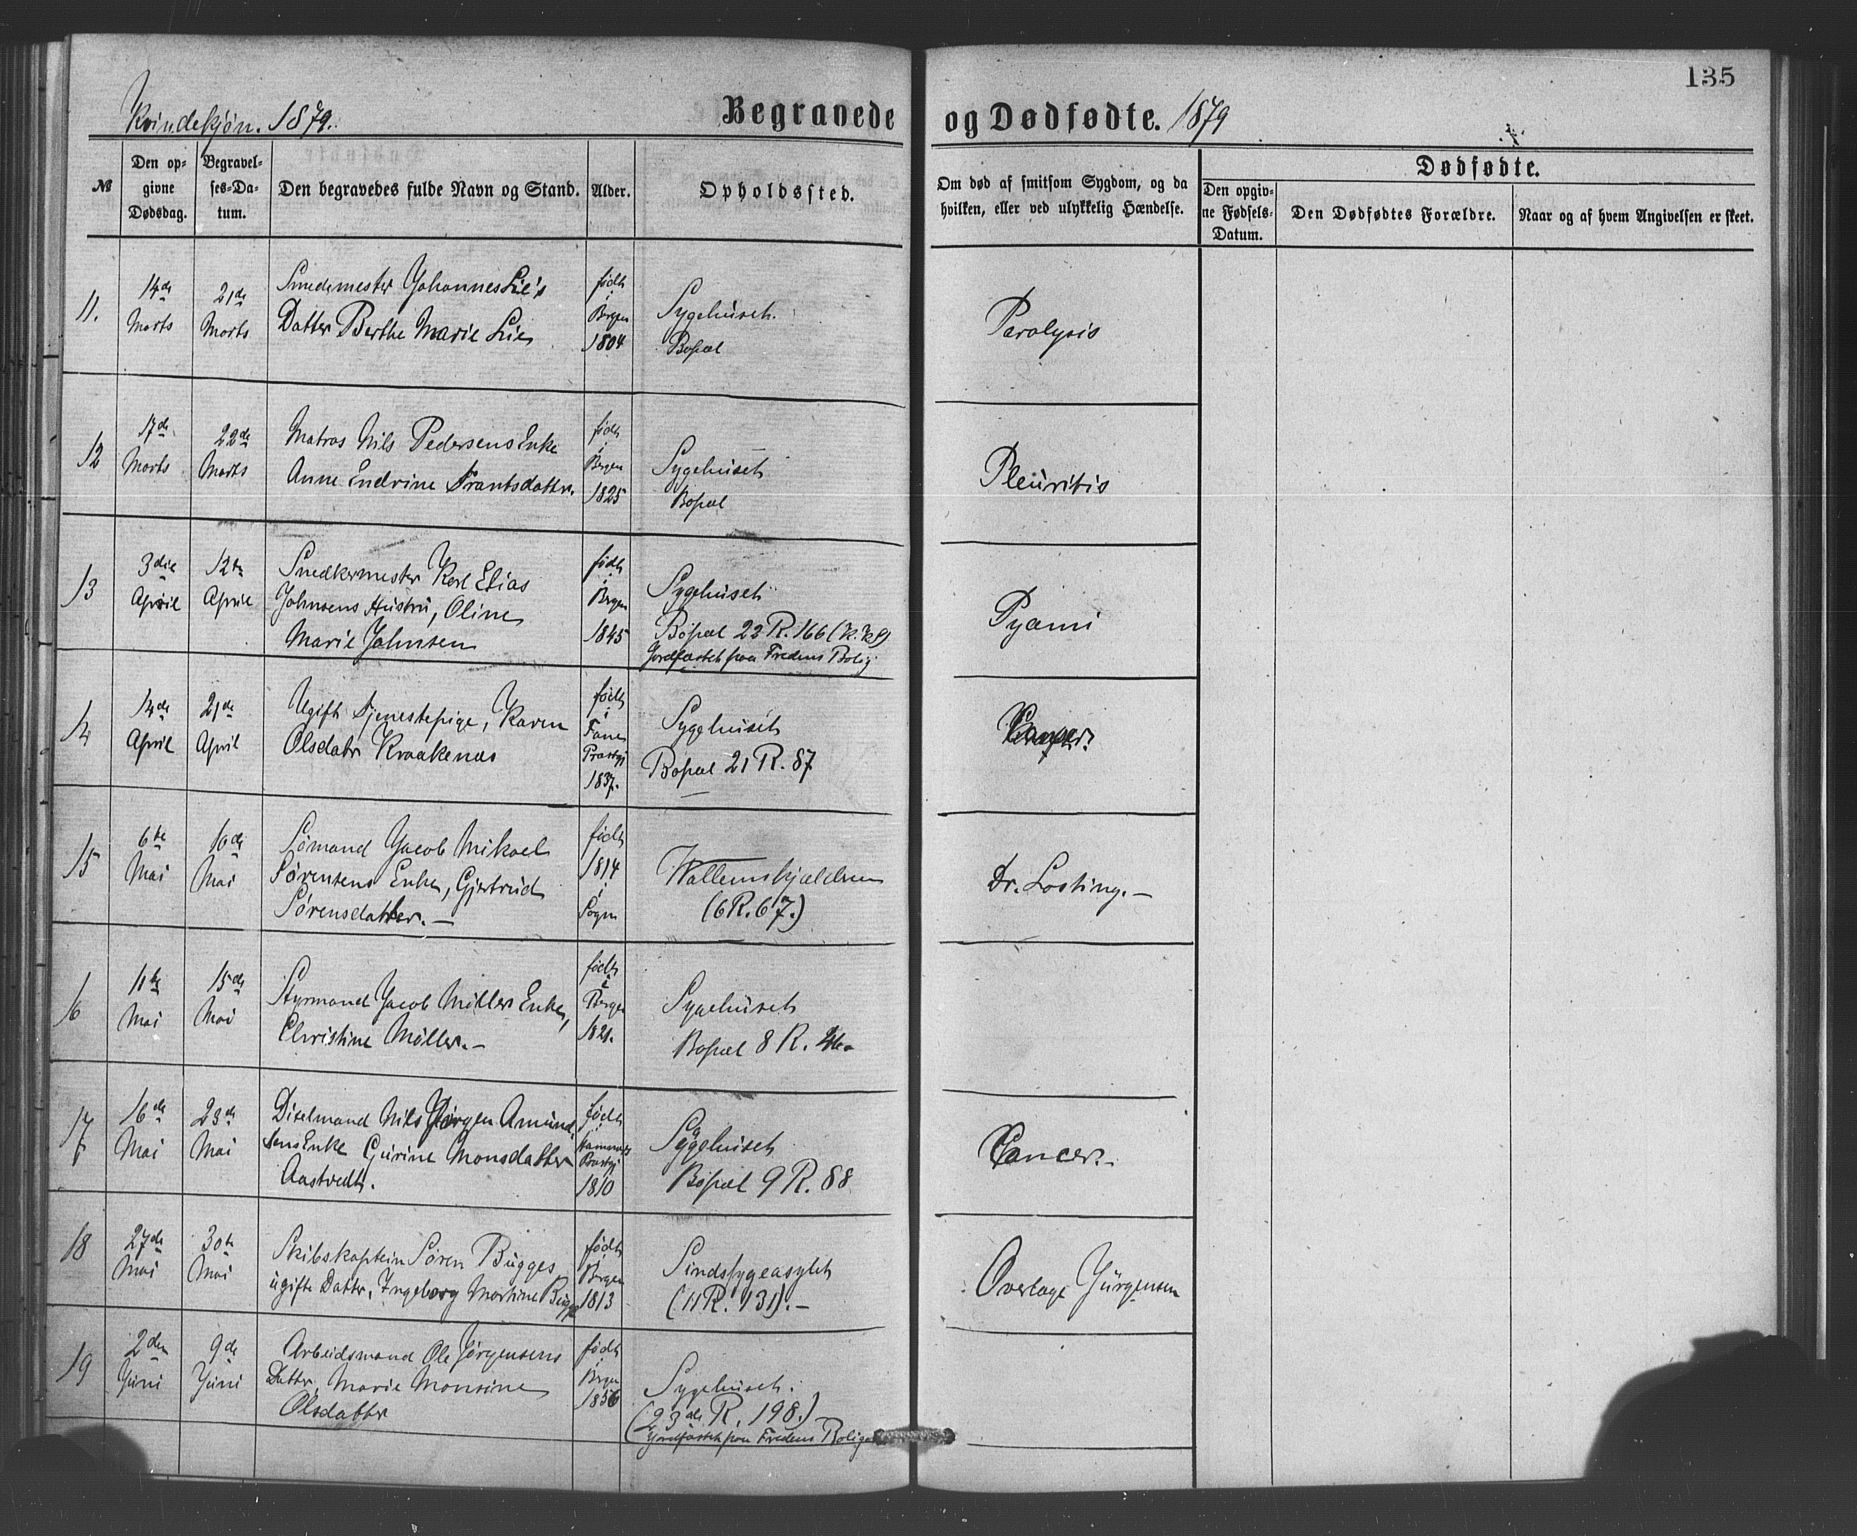 135
Kvindekjøn. 1879.
Begravede
og Dødfødte. 1879
№
Den op-
givne
Dødsdag.
Begravel-
ses-Da-
tum.
Den begravedes fulde Navn og Stand.
Alder.
Opholdssted.
Om død af smitsom Sygdom, og da
hvilken, eller ved ulykkelig Hændelse.
Dødfødte.
Den opgiv-
ne Fødsels-
Datum.
Den Dødfødtes Forældre.
Naar og af hvem Angivelsen er skeet.
11.
14de
Marts
21de
Marts
Smedemester Johannes Lie's
Datter Berthe Marie Lie
født
i
Bergen
1804
Sygehuset.
Bopæl
Paralysis
12
17de
Marts
22de
Marts
Matros Nils Pedersens Enke
Anne Endrine Frantsdatter.
født
i
Bergen
1825
Sygehuset
Bopæl
Pleuritis
13
3die
April
12te
April
Snedkermester Karl Elias
Johnsens Hustru, Oline
Marie Johnsen
født
i
Bergen
1845
Sygehuset
Bopæl 23 R. 166 (K.K.)
Jordfæstet paa Fredens Bolig
Pyæmi
14
14de
April
21de
April
Ugift Tjenestepige, Karen
Olsdatr Kraakenæs
født
i
Fane
Præstgj
1837.
Sygehuset
Bopæl 21 R. 87
15
6te
Mai
10de
Mai
Sømand Jacob Mikael
Sørensens Enke, Gjertrud
Sørensdatter. —
født
1814
i
Sogn
Wallemskjælderen
(6 R. 67.)
Dr. Losting. —
16
11te
Mai
15de
Mai
Styrmand Jacob Møllers Enke,
Christine Møller. —
født
i
Bergen
1821.
Sygehuset
Bopæl 8 R.
17
16de
Mai
23de
Mai
Diselmand Nils Jørgen Amund
sens Enke Gurine Monsdatter
Aastvedt.
født
i
Hammers
Præstgj
1810
Sygehuset
Bopæl 9 R. 88
Cancer. —
18
27de
Mai
30te
Mai
Skibskaptein Søren Bugges
ugifte Datter, Ingeborg Martine Bugge
født
i
Bergen
1813
Sindssygeasylet
(11 R. 131). —
Overlæge Jürgensen
19
2den
Juni
9de
Juni
Arbeidsmand Ole Jørgensens
Datter, Marie Monsine
Olsdatter
født
i
Bergen
1856
Sygehuset.
(23de R. 198.)
Jordfæstet paa Fredens Bolig